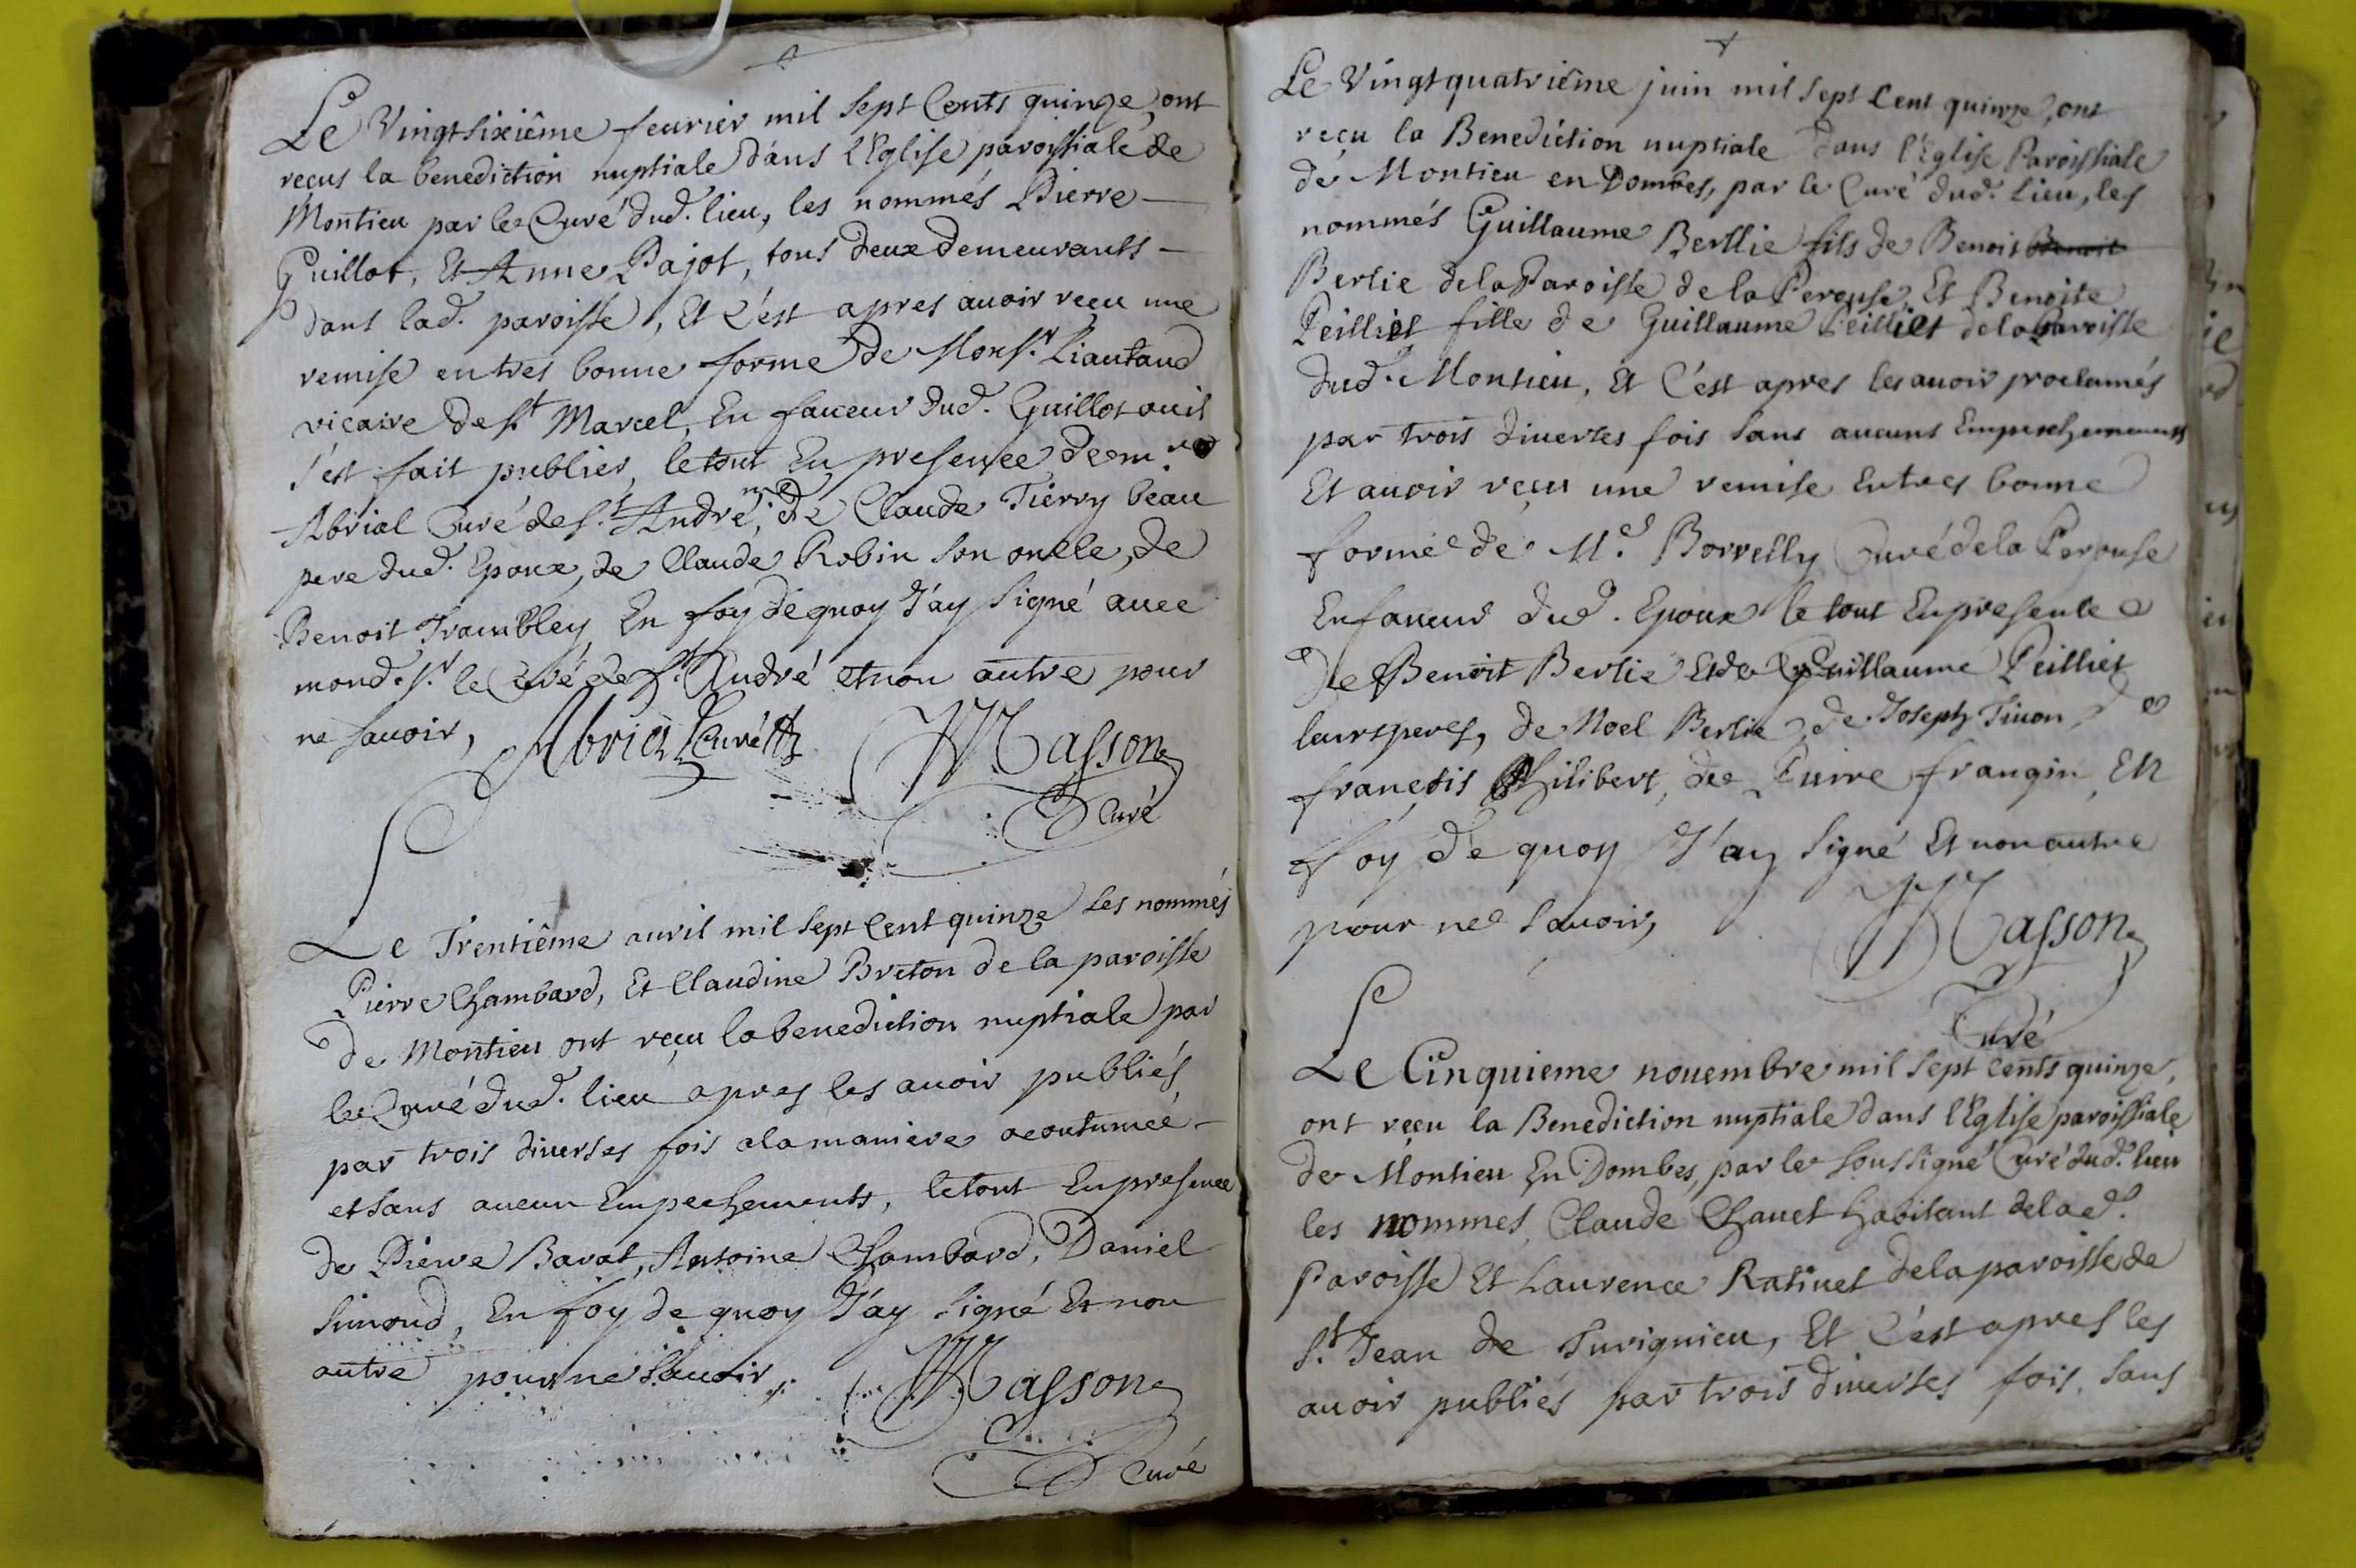 Le Vingtsixiême feurier mil sept Cents quinze, ont
reçus la benediction nuptiale dans l'Eglise paroissiale de
Montieu par le Curé dud. lieu, les nommés Pierre
Guillot, Et Anne Pajot, tous deux demeurants
dans lad. paroisse, Et C'est apres auoir reçu une
remise en tres bonne forme de Mons.r Liautaud
vicaire de S.t Marcel, En faueur dud. Guillot ou il
s'est fait publier, le tout En presence de m.re
Abrial Curé de S.t André, de Claude Tierry beau
pere dud. Epoux, de Claude Robin son oncle, de
Benoit Trambley En foy de quoy J'ay signé auec
mond. s.r le Curé de S.t André et non autre pour
ne sauoir,
Abrial Curé
Masson
Curé
Le Trentiême auril mil sept Cent quinze Les nommés
Pierre Chambard, Et Claudine Breton de la paroisse
de Montieu ont reçu la benediction nuptiale par
le Curé dud. lieu apres les auoir publiés
par trois diuerses fois a la maniere acoutumée
et sans aucun Empechements, le tout En presence
de Pierre Barat, Antoine Chambard, Daniel
Simond, En foy de quoy J'ay signé Et non
autre pour ne sauoir,
Masson
Curé
Le Vingtquatriême juin mil sept Cent quinze, ont
reçu la Benediction nuptiale dans l'Eglise Paroissiale
de Montieu en Dombes, par le Curé dud. Lieu, les
nommés Guillaume Berllie fils de Benois Benoit
Berlie de la Paroisse de la Perouse, Et Benoite
Peilliet fille de Guillaume Peilliet de la Paroisse
dud. Montieu, Et C'est apres les auoir proclamés
par trois diuerses fois sans aucuns Empeschements
Et auoir reçu une remise En tres bonne
forme de M.e Borrelly Curé de la Perouse
En faueur dud. Epoux le tout En presence
de Benoit Berlie Et de Guillaume Peilliet
leurs peres, de Noel Berlie, de Joseph Tiuon, de
françois Philibert, de Pierre frangin, En
foy de quoy J'ay signé Et non autre
pour ne sauoir,
Masson
Curé
Le Cinquieme nouembre mil sept Cents quinze,
ont reçu la Benediction nuptiale dans l'Eglise paroissiale
de Montieu En Dombes, par le soussigné Curé dud. lieu
les nommes, Claude Chauet habitant de lad.
Paroisse Et Laurence Ratiuet de la paroisse de
S.t Jean de Turignieu, Et C'est apres les
auoir publiés par trois diuerses fois, sans